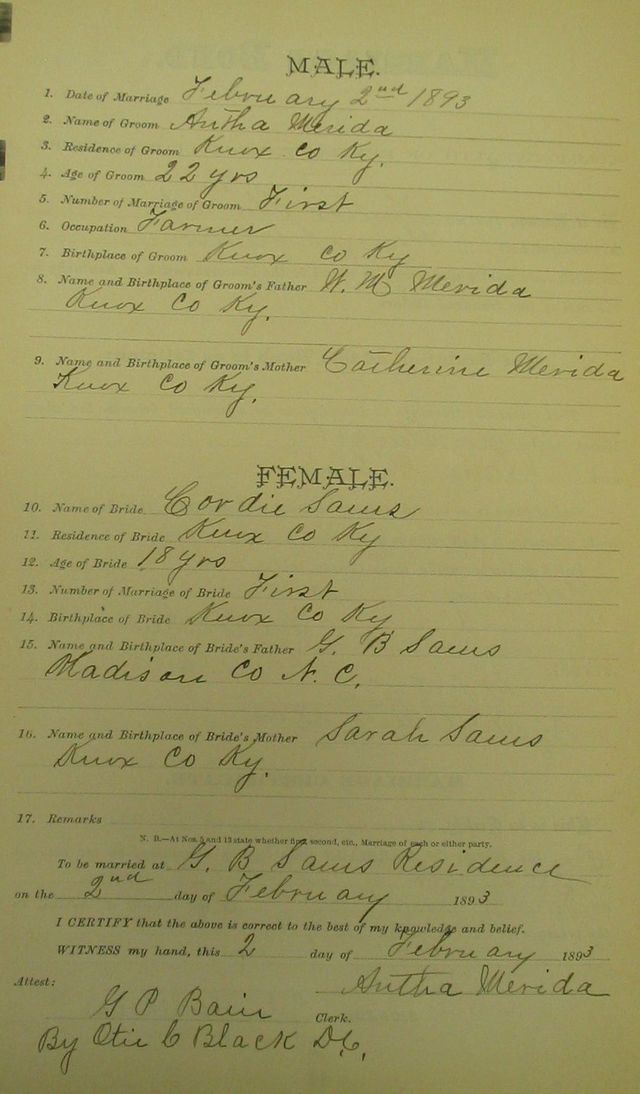 MALE.
1. Date of Marriage February 2nd 1893
2. Name of Groom Autha Merida
3. Residence of Groom Knox Co Ky.
4. Age of Groom 22 yrs
5. Number of Marriage of Groom First
6. Occupation Farmer
7. Birthplace of Groom Knox Co Ky
8. Name and Birthplace of Groom's Father W. M Merida
Knox Co Ky.
9. Name and Birthplace of Groom's Mother Catherine Merida
Knox Co Ky.
FEMALE.
10. Name of Bride Cordie Sams
11. Residence of Bride Knox Co Ky
12. Age of Bride 18 yrs
13. Number of Marriage of Bride First
14. Birthplace of Bride Knox Co Ky
15. Name and Birthplace of Bride's Father G. B Sams
Madison Co N. C.
16. Name and Birthplace of Bride's Mother Sarah Sams
Knox Co Ky.
17. Remarks
N. B.—At Nos. 5 and 13 state whether first, second, etc., Marriage of each or either party.
To be married at G. B Sams Residence
on the 2nd day of February 1893
I CERTIFY that the above is correct to the best of my knowledge and belief.
WITNESS my hand, this 2 day of February 1893
Autha Merida
Attest:
G P Bain Clerk.
By Otis C Black D.C.